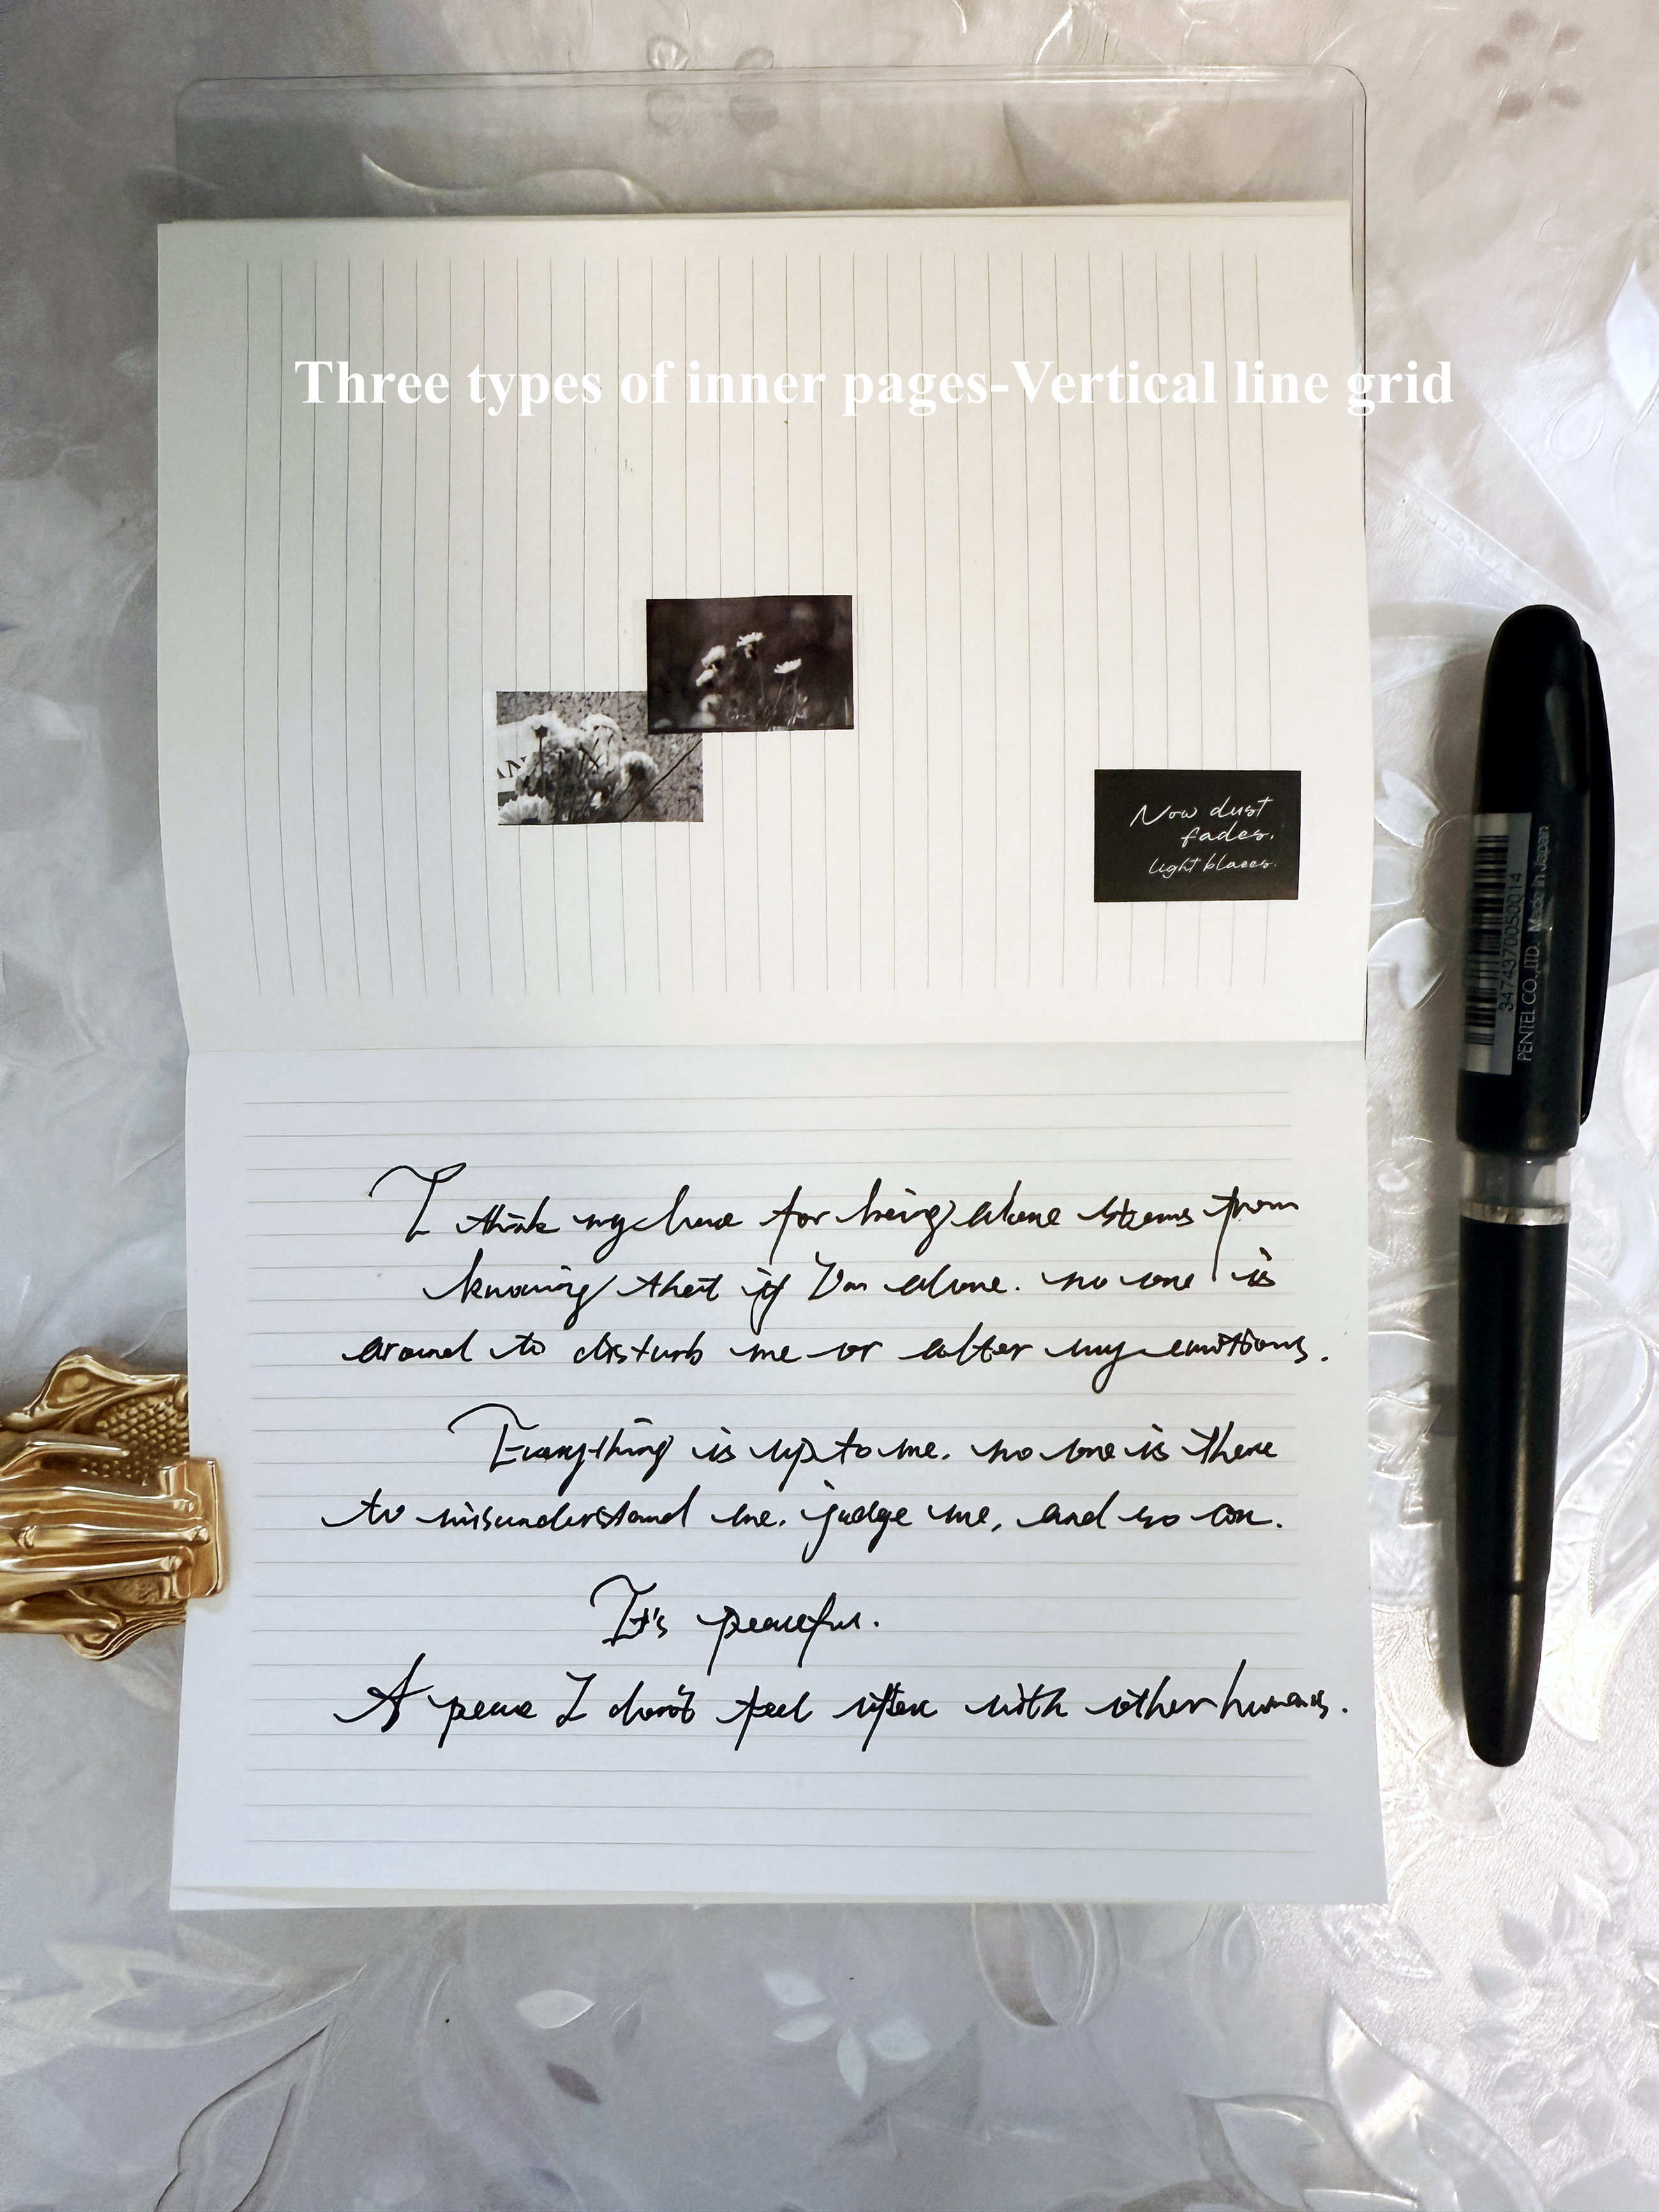 Three types of inner pages-Vertical line grid
Now dust
fades.
light blazes.
I think my love for being alone stems from
knowing that if I'm alone. no one is
around to disturb me or alter my emotions.
Everything is up to me. no one is there
to misunderstand me. judge me, and so on.
It's peaceful.
A peace I don't feel often with other humans.
3474370050014
PENTEL CO.,LTD. Made in Japan